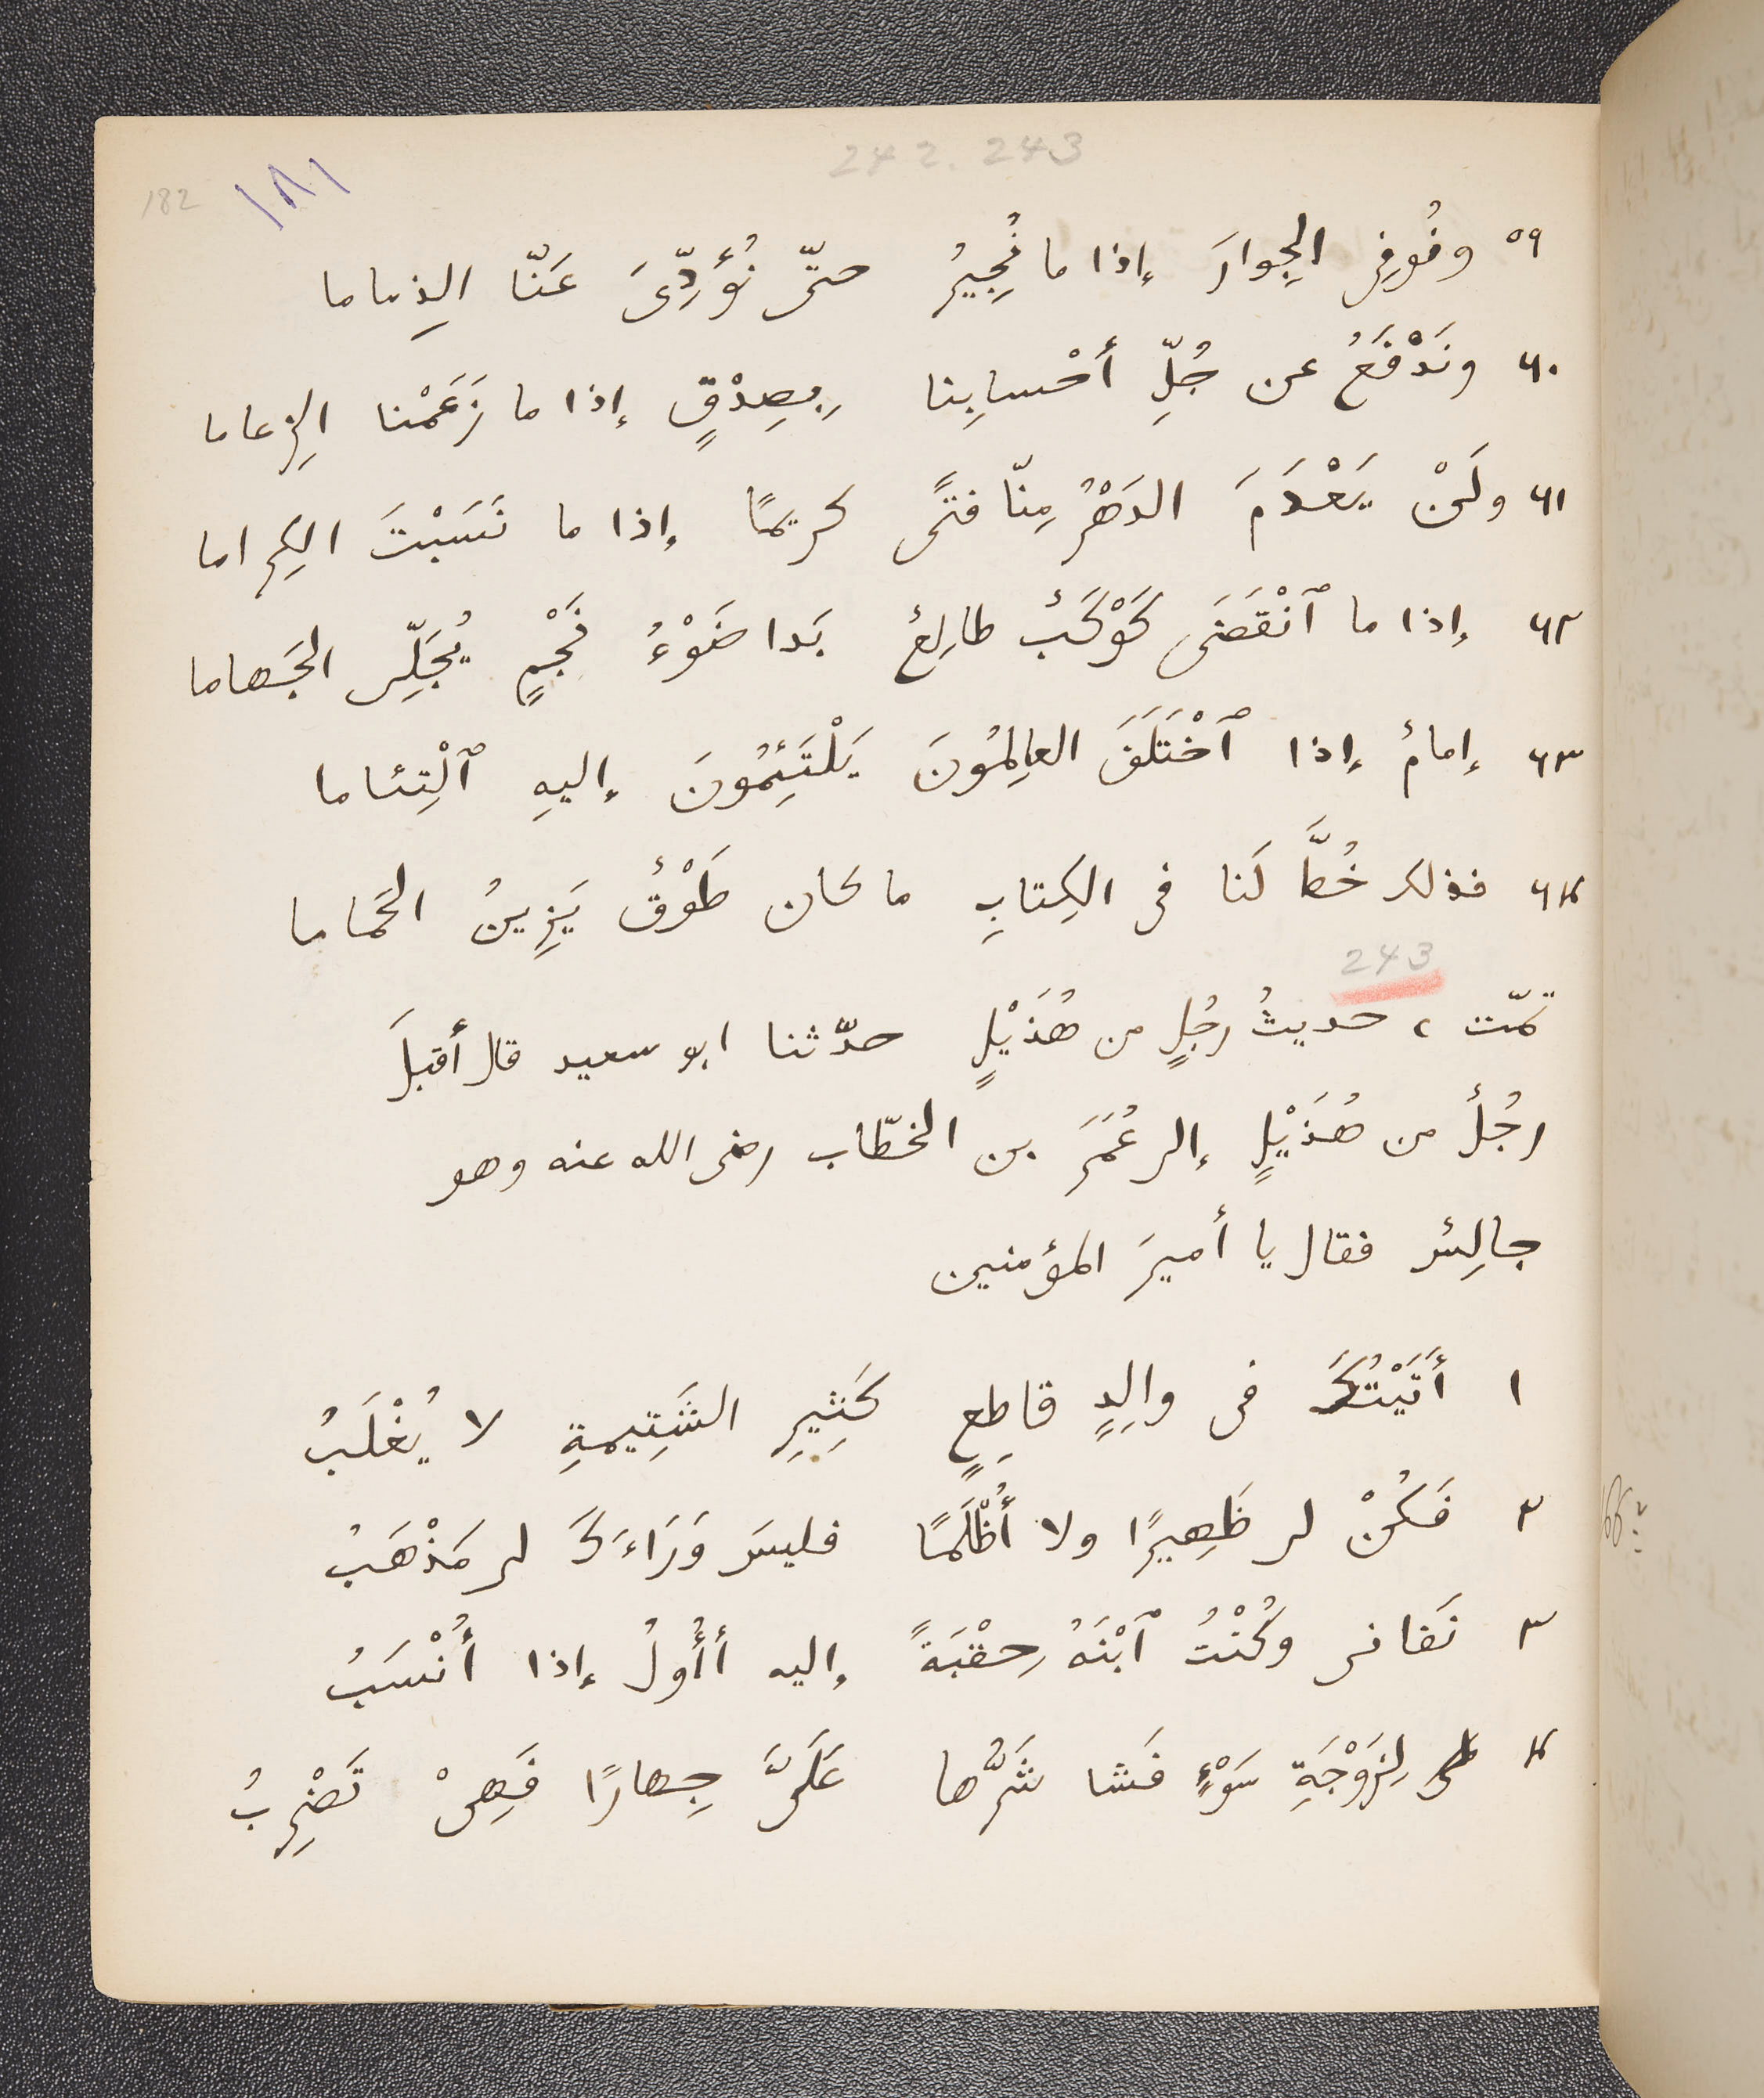 242. 243
182
١٨١
٥٩ ونُوفِى الجِوارَ إذا ما نُجِيرُ حتّى نُؤَدِّىَ عَنّا الذِماما
٦٠ ونَدْفَعُ عن جُلِّ أحْسابِنا بِصِدْقٍ إذا ما زَعَمْنا الزِعاما
٦١ ولَنْ يَعْدَمَ الدَهْرُ مِنّا فتًى كريمًا إذا ما نَسَبْتَ الكِراما
٦٢ إذا ما ٱنْقَضَى كَوْكَبٌ طالِعٌ بَدا ضَوْءُ نَجْمٍ يُجَلِّى الجَهاما
٦٣ إمامٌ إذا ٱخْتَلَفَ العالِمُونَ يَلْتَئِمُونَ إليهِ ٱلْتِئاما
٦٤ فذلك خُطَّ لَنا فى الكِتابِ ما كان طَوْقٌ يَزِينُ الحَماما
243
تمّت ، حديثُ رجُلٍ من هُذَيْلٍ حدّثنا ابو سعيد قال أقبلَ
رجُلٌ من هُذَيْلٍ إلى عُمَرَ بن الخطّاب رضى الله عنه وهو
جالِسٌ فقال يا أميرَ المؤمنين
١ أَتَيْتُكَ فى والِدٍ قاطِعٍ كَثِيرِ الشَتِيمةِ لا يُغْلَبُ
٢ فَكُنْ لى ظَهِيرًا ولا أُظْلَمًا فليسَ وَرَاءَكَ لى مَذْهَبُ
٣ نَفانى وكُنْتُ ٱبْنَهُ حِقْبَةً إليه أَؤُولُ إذا أُنْسَبُ
٤ لِزَوْجَةِ سَوْءٍ فَشا شَرُّها عَلَىَّ جِهارًا فَهِىْ تَضْرِبُ